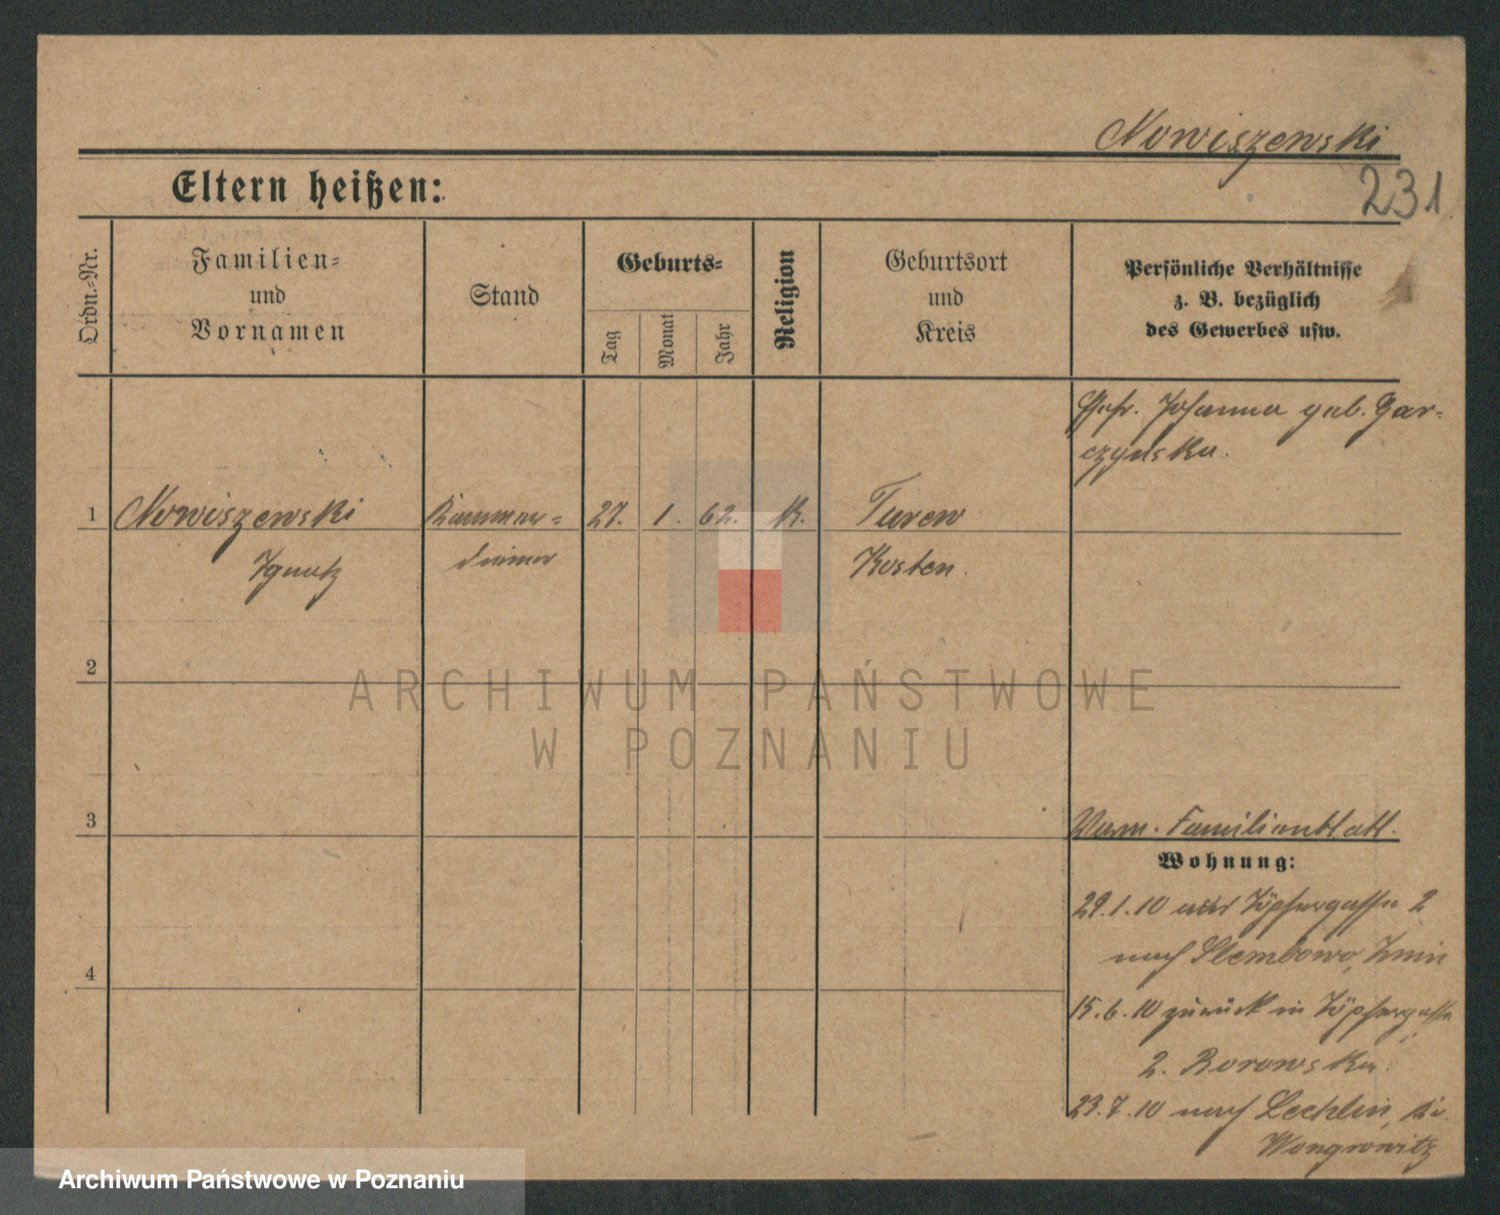 Nowiszewski
231
Eltern heißen:
Ordn.-Nr.
Familien-
und
Vornamen
Stand
Geburts-
Tag
Monat
Jahr
Religion
Geburtsort
und
Kreis
Persönliche Verhältnisse
z. B. bezüglich
des Gewerbes usw.
Ehefr. Johanna geb. Gar-
czynska.
1 Nowiszewski Kammer- 27. 1. 62. K. Turew
Ignatz diener Kosten.
2
3
Verm. Familienblatt.
Wohnung:
4
29.1.10 Töpfergasse 2
nach Slembowo, Znin
15.6.10 zurück in Töpfergasse
2. Borowska
23.7.10 nach Lechlin, Kr.
Wongrowitz
ARCHIWUM PAŃSTWOWE
W POZNANIU
Archiwum Państwowe w Poznaniu